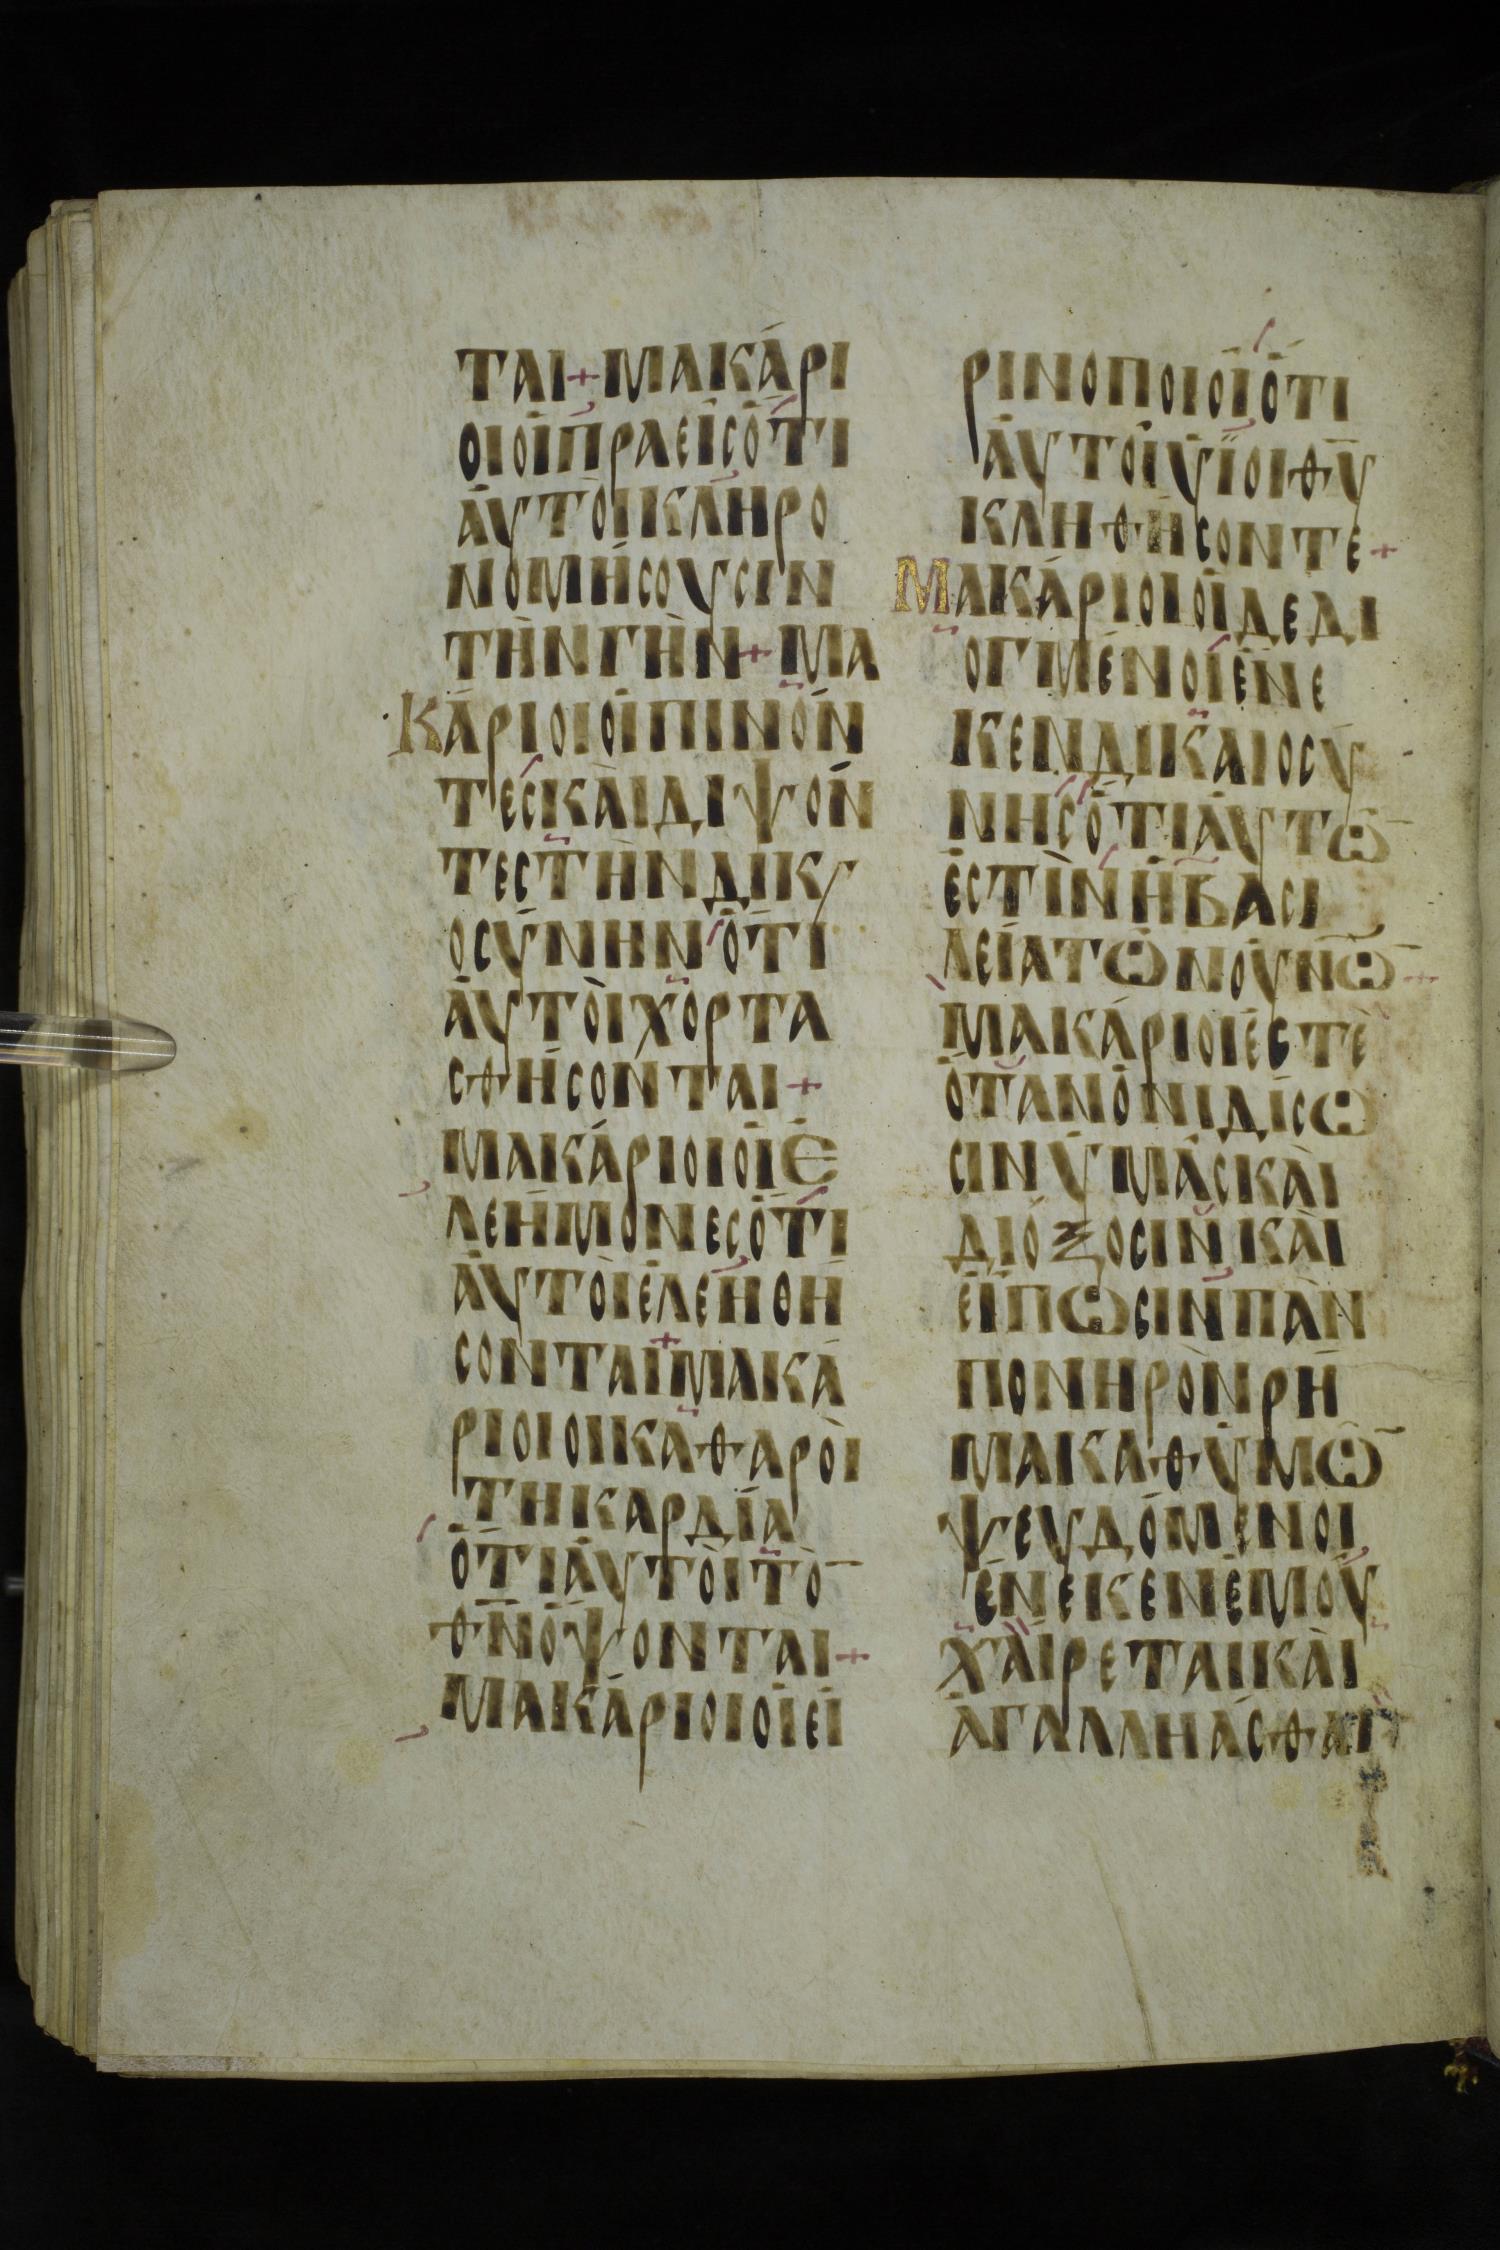 ΤΑΙ + ΜΑΚΆΡΙ
ΟΙΟΙΠΡΑΕΙ̂ΣΌΤΙ
ἈΥΤῸΙΚΛΗΡΟ
ΝΟΜΉΣΟΥΣΙΝ
ΤῊΝΓῊΝ + ΜΑ
ΚΆΡΙΟΙΟΙΠΙΝΌΝ
ΤΕΣΚᾺΙΔΙΨΌΝ
ΤΕΣΤῊΝΔΙΚϚ
ΟΣΎΝΗΝὍΤΙ
ἈΥΤῸΙΧΟΡΤΑ
ΣΘΉΣΟΝΤΑΙ +
ΜΑΚΆΡΙΟΙΟΙἘ
ΛΕΉΜΟΝΕΣΌΤΙ
ἈΥΤῸΙἘΛΕΗΘΉ
ΣΟΝΤΑΙ + ΜΑΚΆ
ΡΙΟΙΟΙΚΑΘΑΡῸΙ
ΤΗΚΑΡΔΊΑ
ὍΤΙἈΥΤῸΙΤῸ̅
Θ̅Ν̅ὌΨΟΝΤΑΙ +
ΜΑΚΆΡΙΟΙΟΙΕΙ
ΡΙΝΟΠΟΙΟΙΌΤΙ
ἈΥΤΟΙΥΙΟΙΘ̅Υ̅
ΚΛΗΘΉΣΟΝΤΕ +
ΜΑΚΆΡΙΟΙΟΙΔΕΔΙ
ΟΓΜΈΝΟΙἝΝΕ
ΚΕΝΔΙΚΑΙΟΣΎ
ΝΗΣΌΤΙἈΥΤΩ̅
ἘΣΤῚΝἩΒΑΣΙ
ΛΕΊΑΤΩΝΟΥΝΩ̅ +
ΜΑΚΆΡΙΟΙἘΣΤΈ
ὍΤΑΝὈΝΙΔΊΣΩ
ΣΙΝΥΜΆΣΚᾺΙ
ΔΙΌΞΟΣΙΝΚᾺΙ
ΕΙΠΩΣΙΝΠᾺΝ
ΠΟΝΗΡῸΝΡΉ
ΜΑΚΑΘΥΜΩ̅
ΨΕΥΔΌΜΕΝΟΙ
ἝΝΕΚΕΝἘΜΟΥ
ΧΑΊΡΕΤΑΙΚᾺΙ
ἈΓΑΛΛΗΆΣΘΑΙ